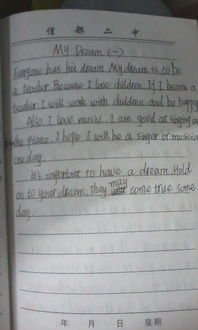 信都二中
My Dream (一)
Everyone has his dream. My dream is to be
a teacher. Because I love children. If I become a
teacher. I will work with children and be happy
Also, I love music. I am good at singing and
the Piano. I hope I will be a singer or musician
one day.
It's important to have a dream. Hold
on to your dream. They may come true some
day.
年 月 日 星期